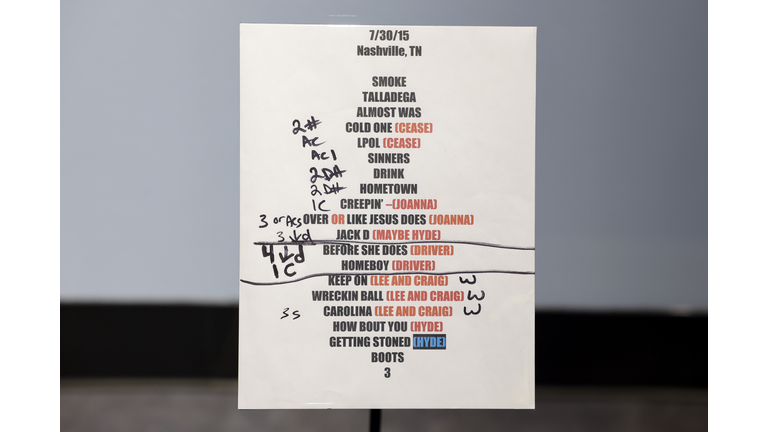 7/30/15
Nashville, TN
SMOKE
TALLADEGA
ALMOST WAS
2# COLD ONE (CEASE)
AC LPOL (CEASE)
AC1 SINNERS
DRINK
2D# HOMETOWN
1C CREEPIN' –(JOANNA)
3 or ACs OVER OR LIKE JESUS DOES (JOANNA)
3↓d JACK D (MAYBE HYDE)
4↓d BEFORE SHE DOES (DRIVER)
1C HOMEBOY (DRIVER)
KEEP ON (LEE AND CRAIG) 3
WRECKIN BALL (LEE AND CRAIG) 3
3s CAROLINA (LEE AND CRAIG) 3
HOW BOUT YOU (HYDE)
GETTING STONED (HYDE)
BOOTS
3